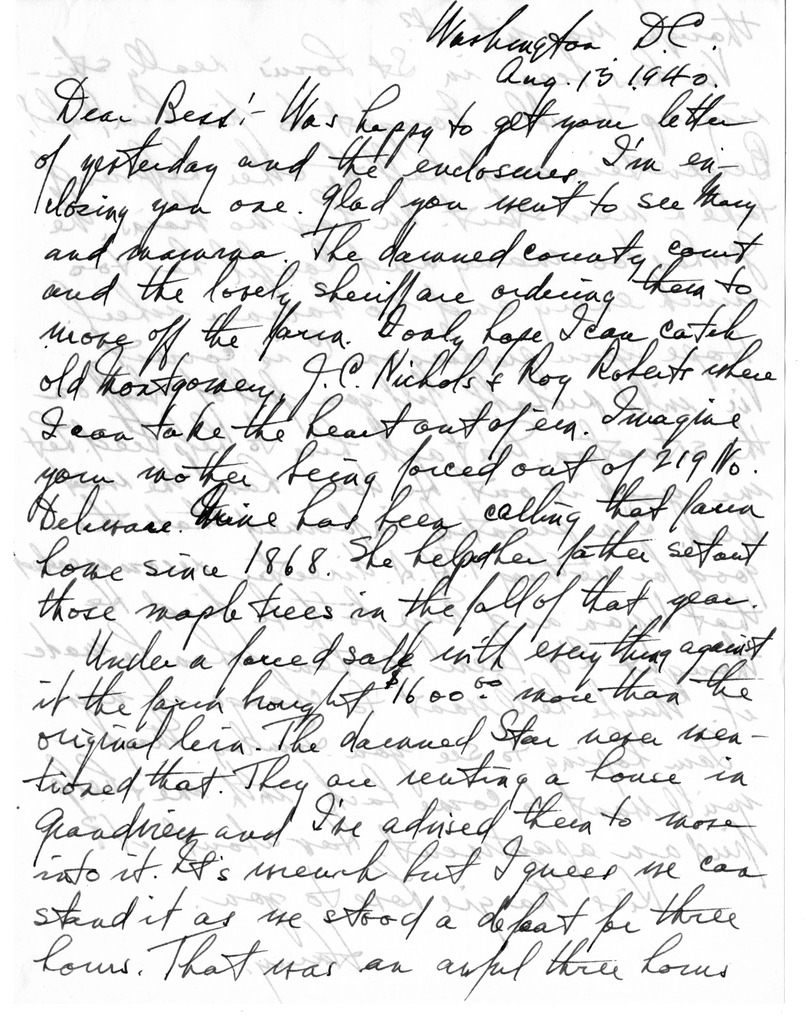 Washington, D.C.
Aug. 13 1940.
Dear Bess:- Was happy to get your letter
of yesterday and the enclosures. I'm en-
closing you one. Glad you went to see Mary
and mamma. The damned county court
and the lovely sheriff are ordering them to
move off the farm. I only hope I can catch
old Montgomery, J.C. Nichols & Roy Roberts where
I can take the heart out of em. Imagine
your mother being forced out of 219 No.
Delaware. Mine has been calling that farm
home since 1868. She helped her father set out
those maple trees in the fall of that year.
Under a forced sale with everything against
it the farm brought $1600.00 more than the
original lein. The damned Star never men-
tioned that. They are renting a house in
Grandview and I've advised them to move
into it. It's wrench but I guess we can
stand it as we stood a defeat for three
hours. That was an awful three hours